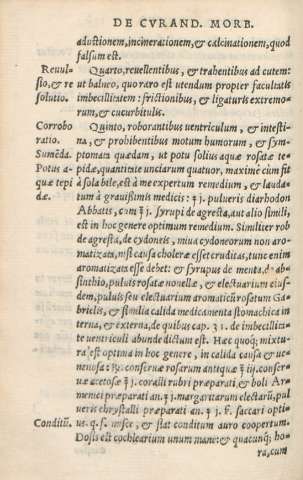 DE CVRAND. MORB.
adustionem, incinerationem, & calcinationem, quod
falsum est.
Reuul- Quarto, reuellentibus, & trahentibus ad cutem:
sio, & re ut balneo, quo raro est utendum propter facultatis
solutio. imbecillitatem: frictionibus, & ligaturis extremo-
rum, & cucurbitulis.
Corrobo Quinto, roborantibus uentriculum, & intesti-
ratio. na, & prohibentibus motum humorum, & sym-
Sumẽda. ptomata quædam, ut potu solius aquæ rosatæ te-
Potus a- pidæ, quantitate unciarum quatuor, maxime cùm sit
quæ tepi à sola bile, est à me expertum remedium, & lauda-
dæ. tum à grauissimis medicis: ʒ j. pulueris diarhodon
Abbatis, cum ℥ j. syrupi de agresta, aut alio simili,
est in hoc genere optimum remedium. Similier rob
de agresta, de cydoneis, miua cydoneorum non aro-
matizata, nisi causa choleræ esset cruditas, tunc enim
aromatizata esse debet: & syrupus de menta, d' ab-
sinthio, puluis rosatæ nouellæ, & electuarium eius-
dem, puluis seu electuarium aromaticũ rosatum Ga-
brielis, & similia calida medicamenta stomachica in
terna, & externa, de quibus cap. 31. de imbecillita-
te uentriculi abunde dictum est. Hæc quoq; mixtu-
ra est optima in hoc genere, in calida causa & ue-
nenosa: ℞. conseruæ rosarum antiquæ ℥ iij. conser-
uæ acetosæ ℥ j. coralli rubri præparati & boli Ar-
menici præparati an. ʒ j. margaritarum elect. ℈ ij. pul
ueris chrystalli præparati an. ʒ j. ß. saccari opti-
Conditũ. us. q. s. misce, & fiat conditum auro coopertum.
Dosis est coclearium unum mane: & quacunq; ho-
ra, cum